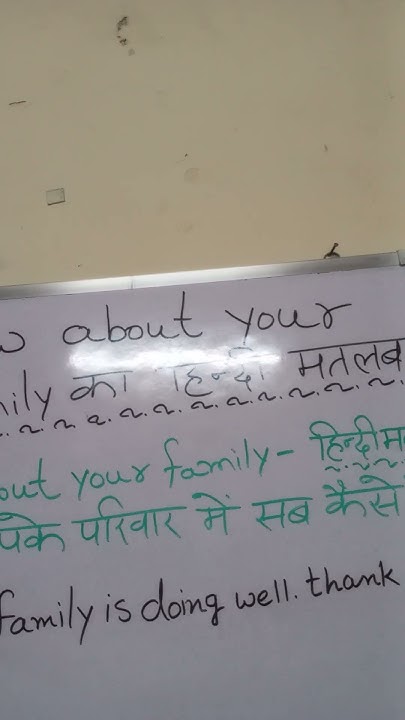 about your
का हिन्दी मतलब
your family - हिन्दी
परिवार में सब कैसे
family is doing well. thank